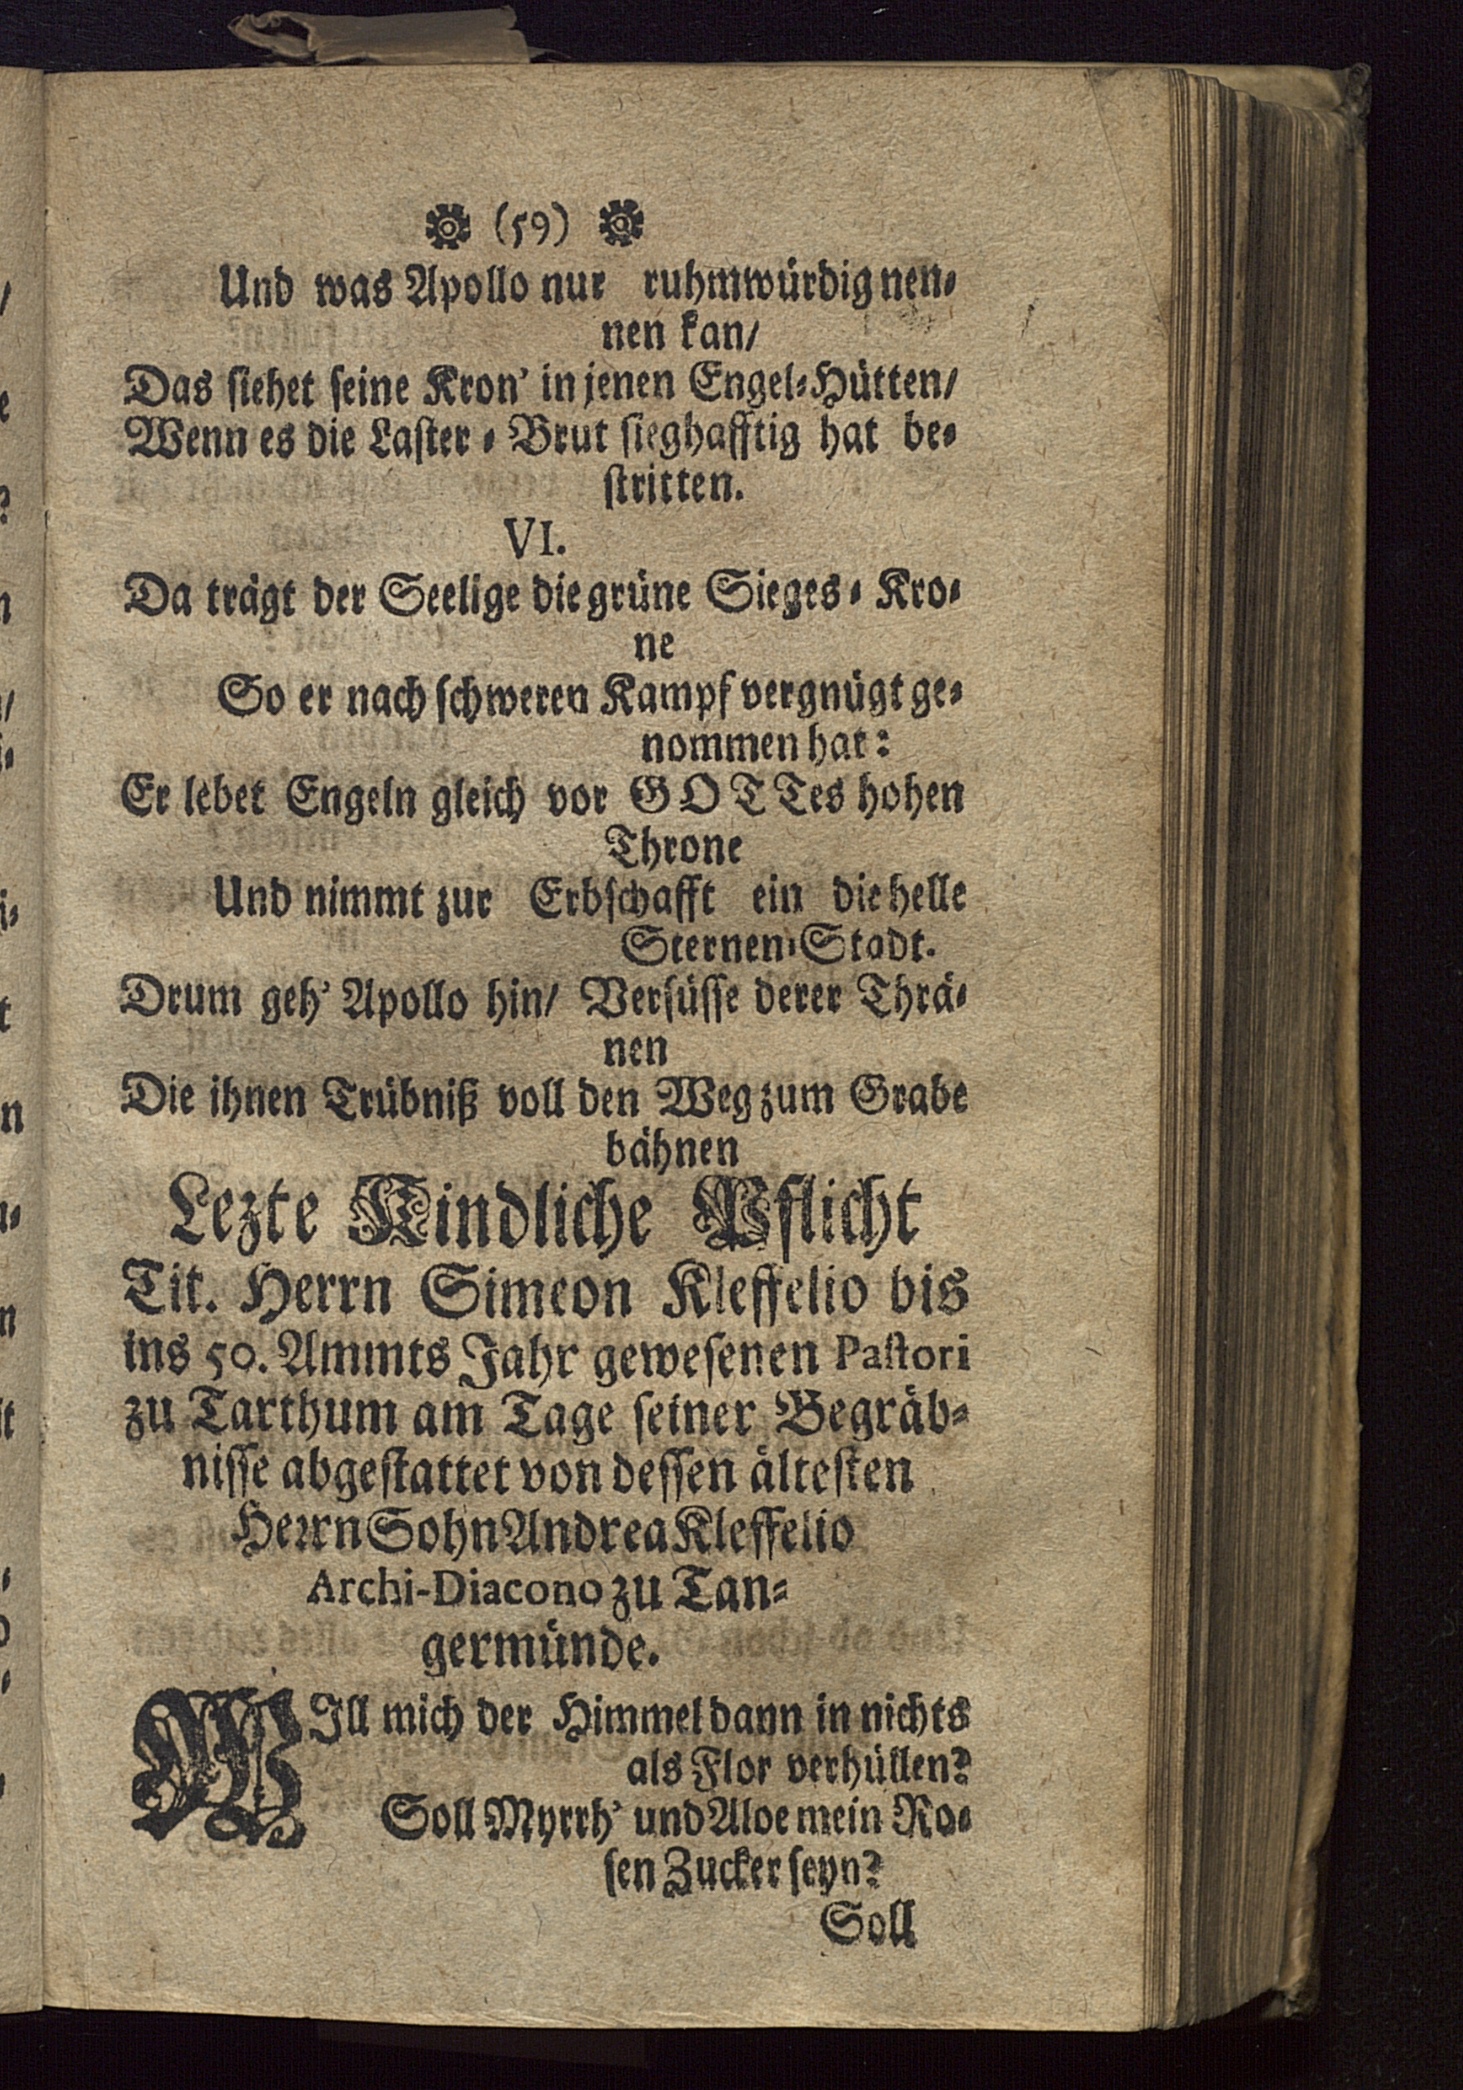 (59)
Und was Apollo nur ruhmwürdig nen-
nen kan/
Das siehet seine Kron' in jenen Engel-Hütten/
Wenn es die Laster-Brut sieghafftig hat be-
stritten.
VI.
Da trägt der Seelige die grüne Sieges-Kro-
ne
So er nach schweren Kampf vergnügt ge-
nommen hat:
Er lebet Engeln gleich vor GOTTes hohen
Throne
Und nimmt zur Erbschafft ein die helle
Sternen-Stadt.
Drum geh' Apollo hin/ Versüsse derer Thrä-
nen
Die ihnen Trübniß voll den Weg zum Grabe
bähnen
Lezte Kindliche Pflicht
Tit. Herrn Simeon Kleffelio bis
ins 50. Ammts Jahr gewesenen Pastori
zu Tarthum am Tage seiner Begräb-
nisse abgestattet von dessen ältesten
Herrn Sohn Andrea Kleffelio
Archi-Diacono zu Tan-
germünde.
WIll mich der Himmel dann in nichts
als Flor verhüllen?
Soll Myrrh' und Aloe mein Ro-
sen Zucker seyn?
Soll